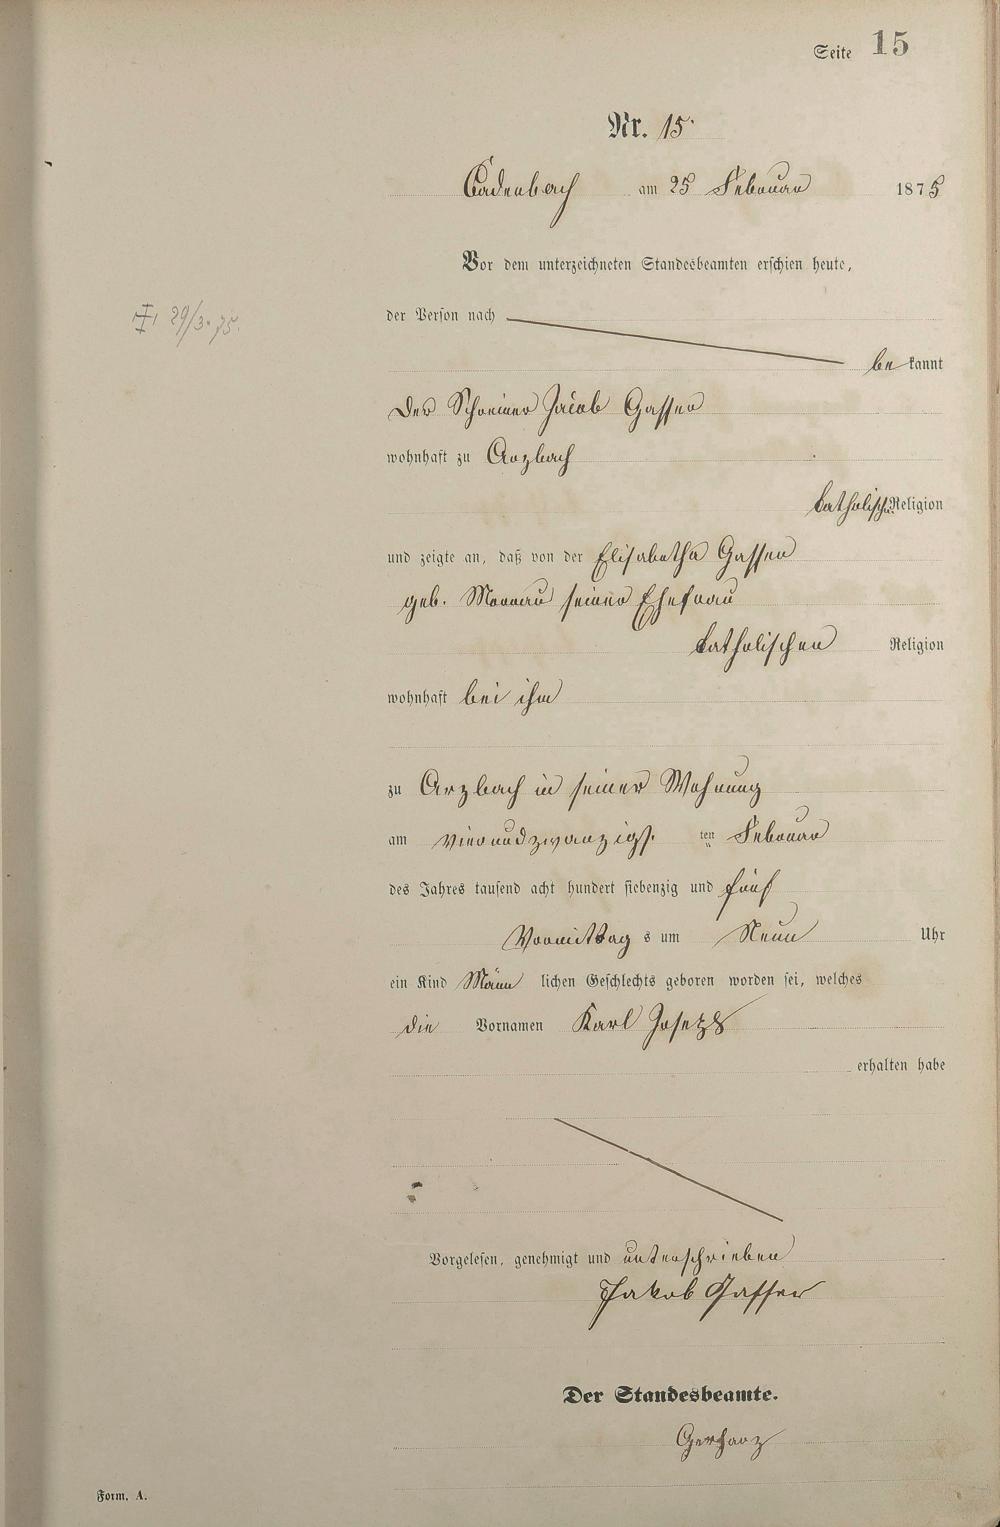 Seite 15
Nr. 15.
Cadenbach am 25 Februar 1875
Vor dem unterzeichneten Standesbeamten erschien heute,
der Person nach
be kannt
Der Schreiner Jacob Gasser
wohnhaft zu Arzbach
katholischer Religion
und zeigte an, daß von der Elisabetha Gasser
geb. seiner Ehefrau
katholischen Religion
wohnhaft bei ihm
zu Arzbach in seiner Wohnung
am vierundzwanzigs. ten Februar
des Jahres tausend acht hundert siebenzig und fünf
Vormittag s um Neun Uhr
ein Kind Männ lichen Geschlechts geboren worden sei, welches
die Vornamen Karl Joseph
erhalten habe
Vorgelesen, genehmigt und unterschrieben
Jakob Gasser
Der Standesbeamte.
Gerharz
29/3. 75.
Form. A.